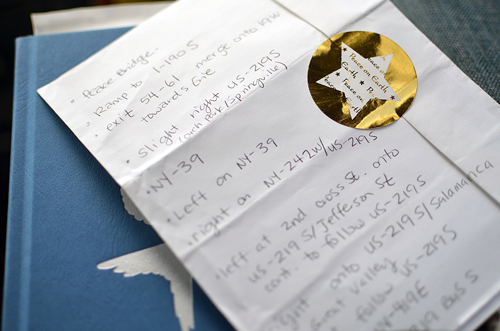 • Peace Bridge -
• Ramp to I-190 S
• exit 54-61 merge onto 190
towards Erie
• slight right US-219 S
(Orch Park/Springville)
• NY-39
• Left on NY-39
• right on NY-242W/US-219S
• left at 2nd cross st. onto
US-219 S/Jefferson St
cont. to follow US-219S
right onto US-219S/Salamanca
Great Valley
follow US-219S
E
219 Bus S
Peace on Earth
Peace on
Earth
Peace on